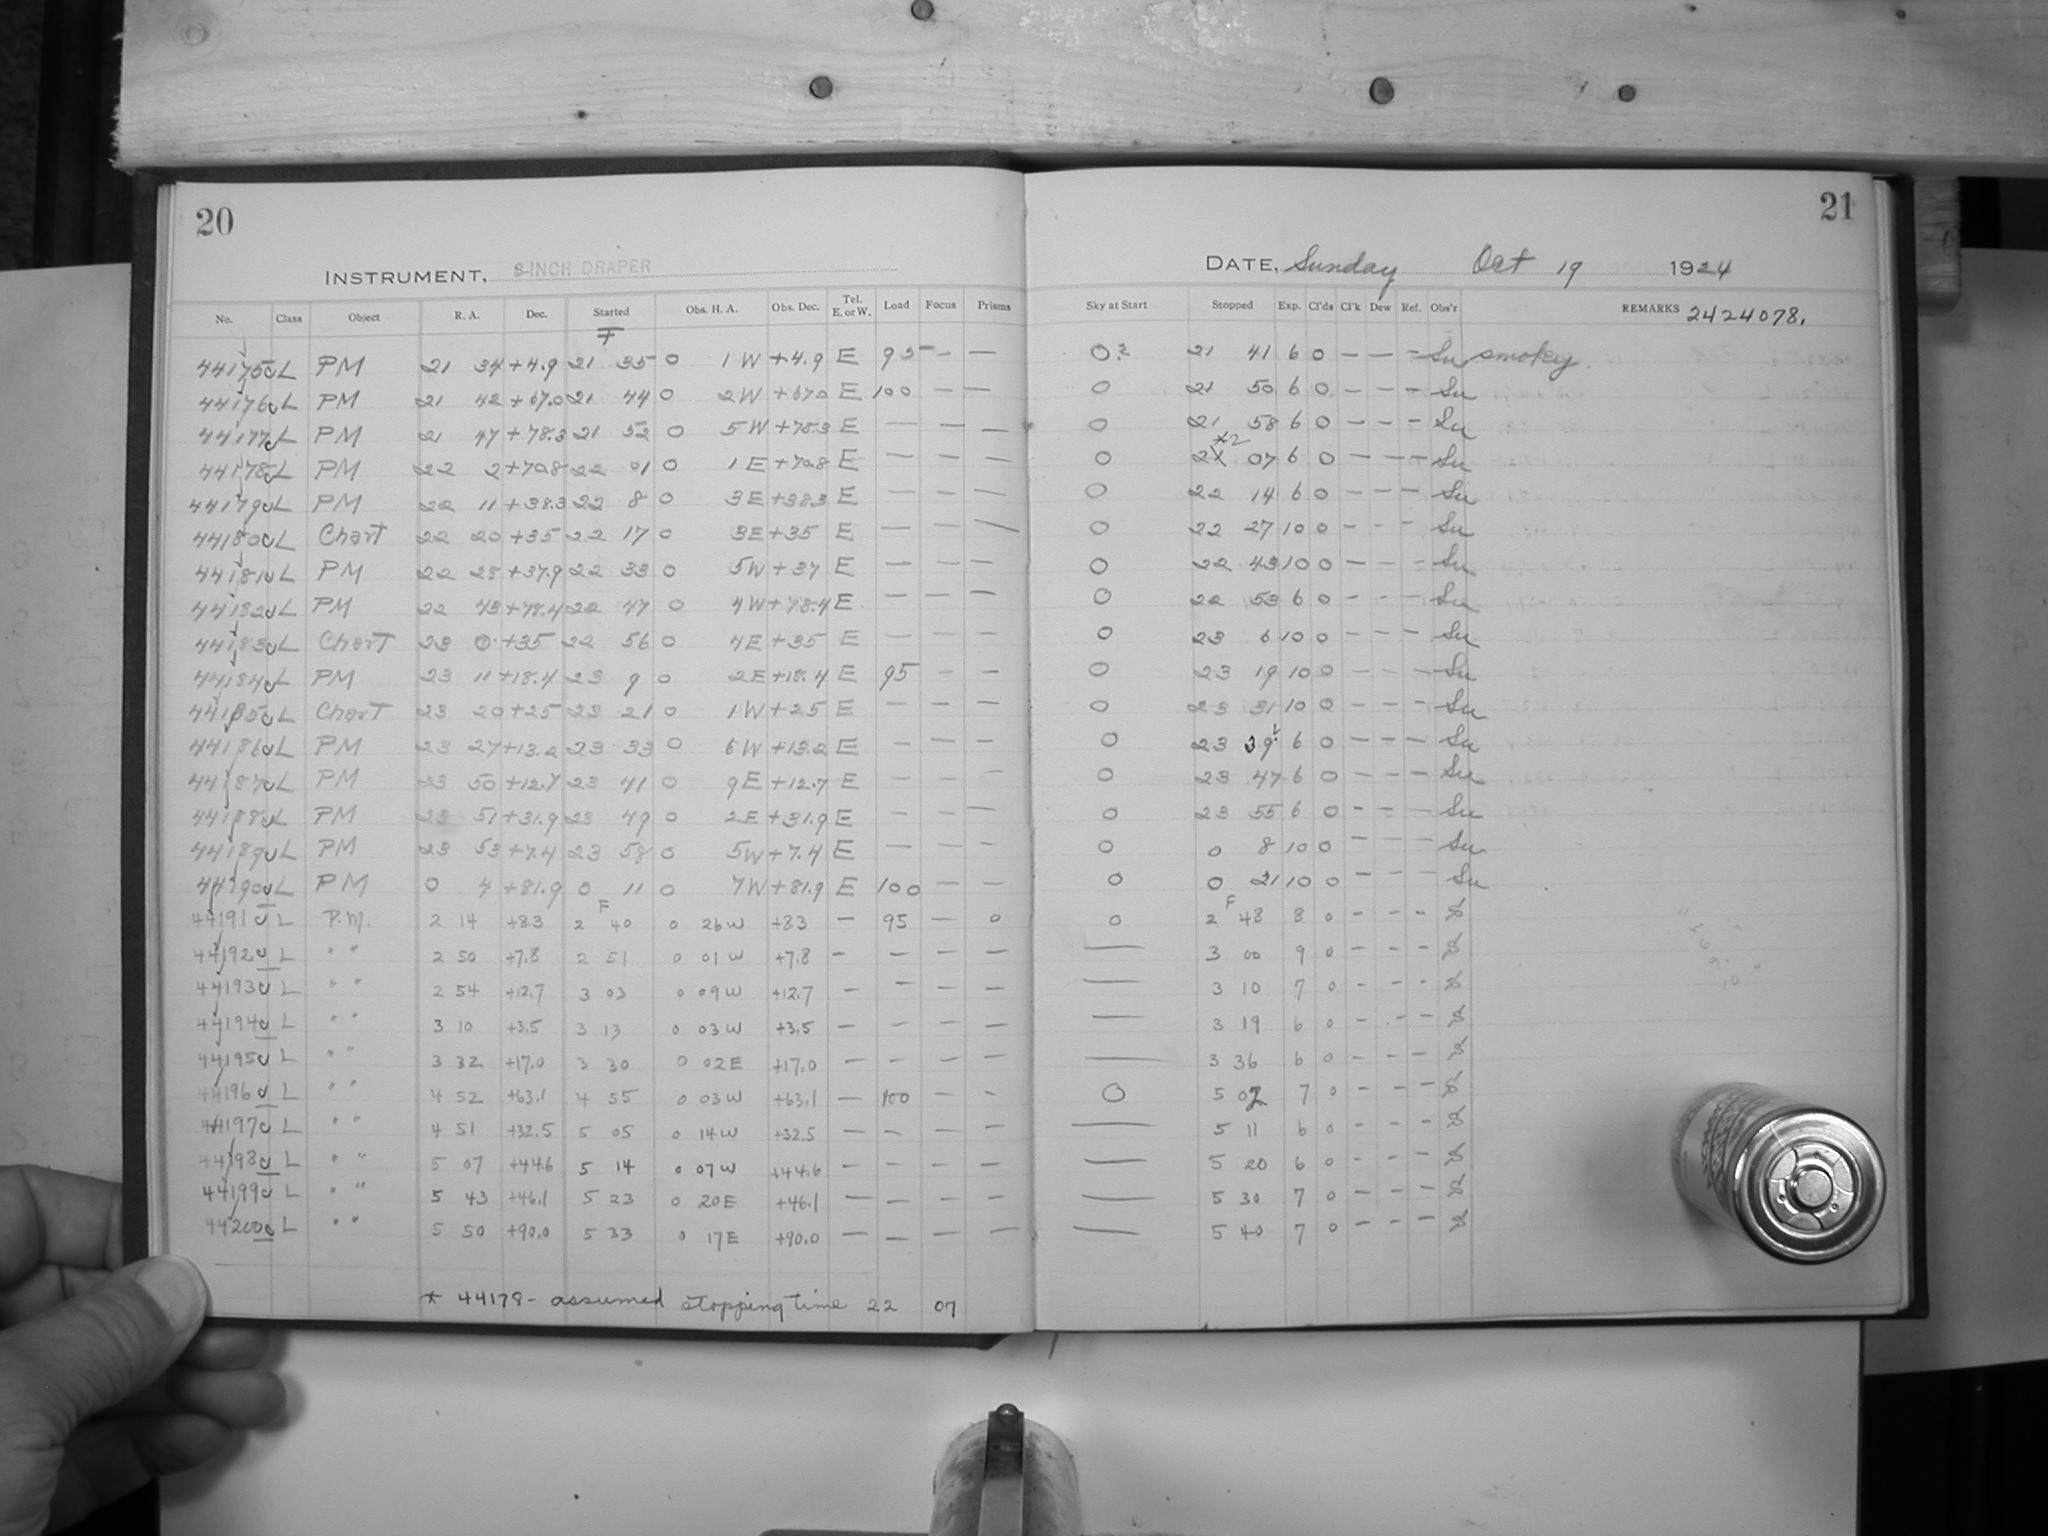 20
21
INSTRUMENT, 8-INCH DRAPER
DATE, Sunday Oct 19 1924
No. Class Object R. A. Dec. Started Obs. H. A. Obs. Dec. Tel. E. or W. Load Focus Prisms Sky at Start Stopped Exp. Cl'ds Cl'k Dew Ref. Obs'r REMARKS 2424078.
F
44175 L PM 21 34 +4.9 21 35 0 1 W +4.9 E 95 — — 0? 21 41 6 0 — — — Su smokey.
44176 L PM 21 42 +67.0 21 44 0 2W +67.0 E 100 0 21 50 6 0 — — — Su
44177 L PM 21 47 +78.3 21 52 0 5 W +78.3 E — — — 0 21 58 6 0 — — — Su
*2
44178 L PM 22 2 +70.8 22 01 0 1 E +70.8 E — — — 0 2X 07 6 0 — — — Su
44179 L PM 22 11 +38.3 22 8 0 3E +38.3 E — — — 0 22 14 6 0 — — — Su
44180 L Chart 22 20 +35 22 17 0 3E +35 E — — — 0 22 27 10 0 — — — Su
44181 L PM 22 28 +37.9 22 33 0 5W +37 E — — — 0 22 43 10 0 — — — Su
44182 L PM 22 43 +78.4 22 47 0 4W +78.4 E — — — 0 22 53 6 0 — — — Su
44183 L Chart 23 0 +35 22 56 0 4E +35 E — — — 0 23 6 10 0 — — — Su
44184 L PM 23 11 +18.4 23 9 0 2E +18.4 E 95 — — 0 23 19 10 0 — — — Su
44185 L Chart 23 20 +25 23 21 0 1W +25 E — — — 0 23 31 10 0 — — — Su
44186 L PM 23 27 +13.2 23 33 0 6W +13.2 E — — — 0 23 39 6 0 — — — Su
44187 L PM 23 50 +12.7 23 41 0 9E +12.7 E — — — 0 23 47 6 0 — — — Su
44188 L PM 23 51 +31.9 23 49 0 2E +31.9 E — — — 0 23 55 6 0 — — — Su
44189 L PM 23 53 +7.4 23 58 0 5W +7.4 E — — — 0 0 8 10 0 — — — Su
44190 L PM 0 4 +81.9 0 11 0 7W +81.9 E 100 — — 0 0 21 10 0 — — — Su
F F
44191 L P.M. 2 14 +8.3 2 40 0 26W +8.3 — 95 — 0 0 2 48 8 0 — — —
44192 L " " 2 50 +7.8 2 51 0 01 W +7.8 — — — — — 3 00 9 0 — — —
44193 L " " 2 54 +12.7 3 03 0 09W +12.7 — — — — — 3 10 7 0 — — —
44194 L " " 3 10 +3.5 3 13 0 03W +3.5 — — — — — 3 19 6 0 — — —
44195 L " " 3 32 +17.0 3 30 0 02E +17.0 — — — — — 3 36 6 0 — — —
44196 L " " 4 52 +63.1 4 55 0 03W +63.1 — 100 — — 0 5 02 7 0 — — —
44197 L " " 4 51 +32.5 5 05 0 14W +32.5 — — — — — 5 11 6 0 — — —
44198 L " " 5 07 +44.6 5 14 0 07W +44.6 — — — — — 5 20 6 0 — — —
44199 L " " 5 43 +46.1 5 23 0 20E +46.1 — — — — — 5 30 7 0 — — —
44200 L " " 5 50 +90.0 5 33 0 17E +90.0 — — — — — 5 40 7 0 — — —
* 44178 - assumed stopping time 22 07